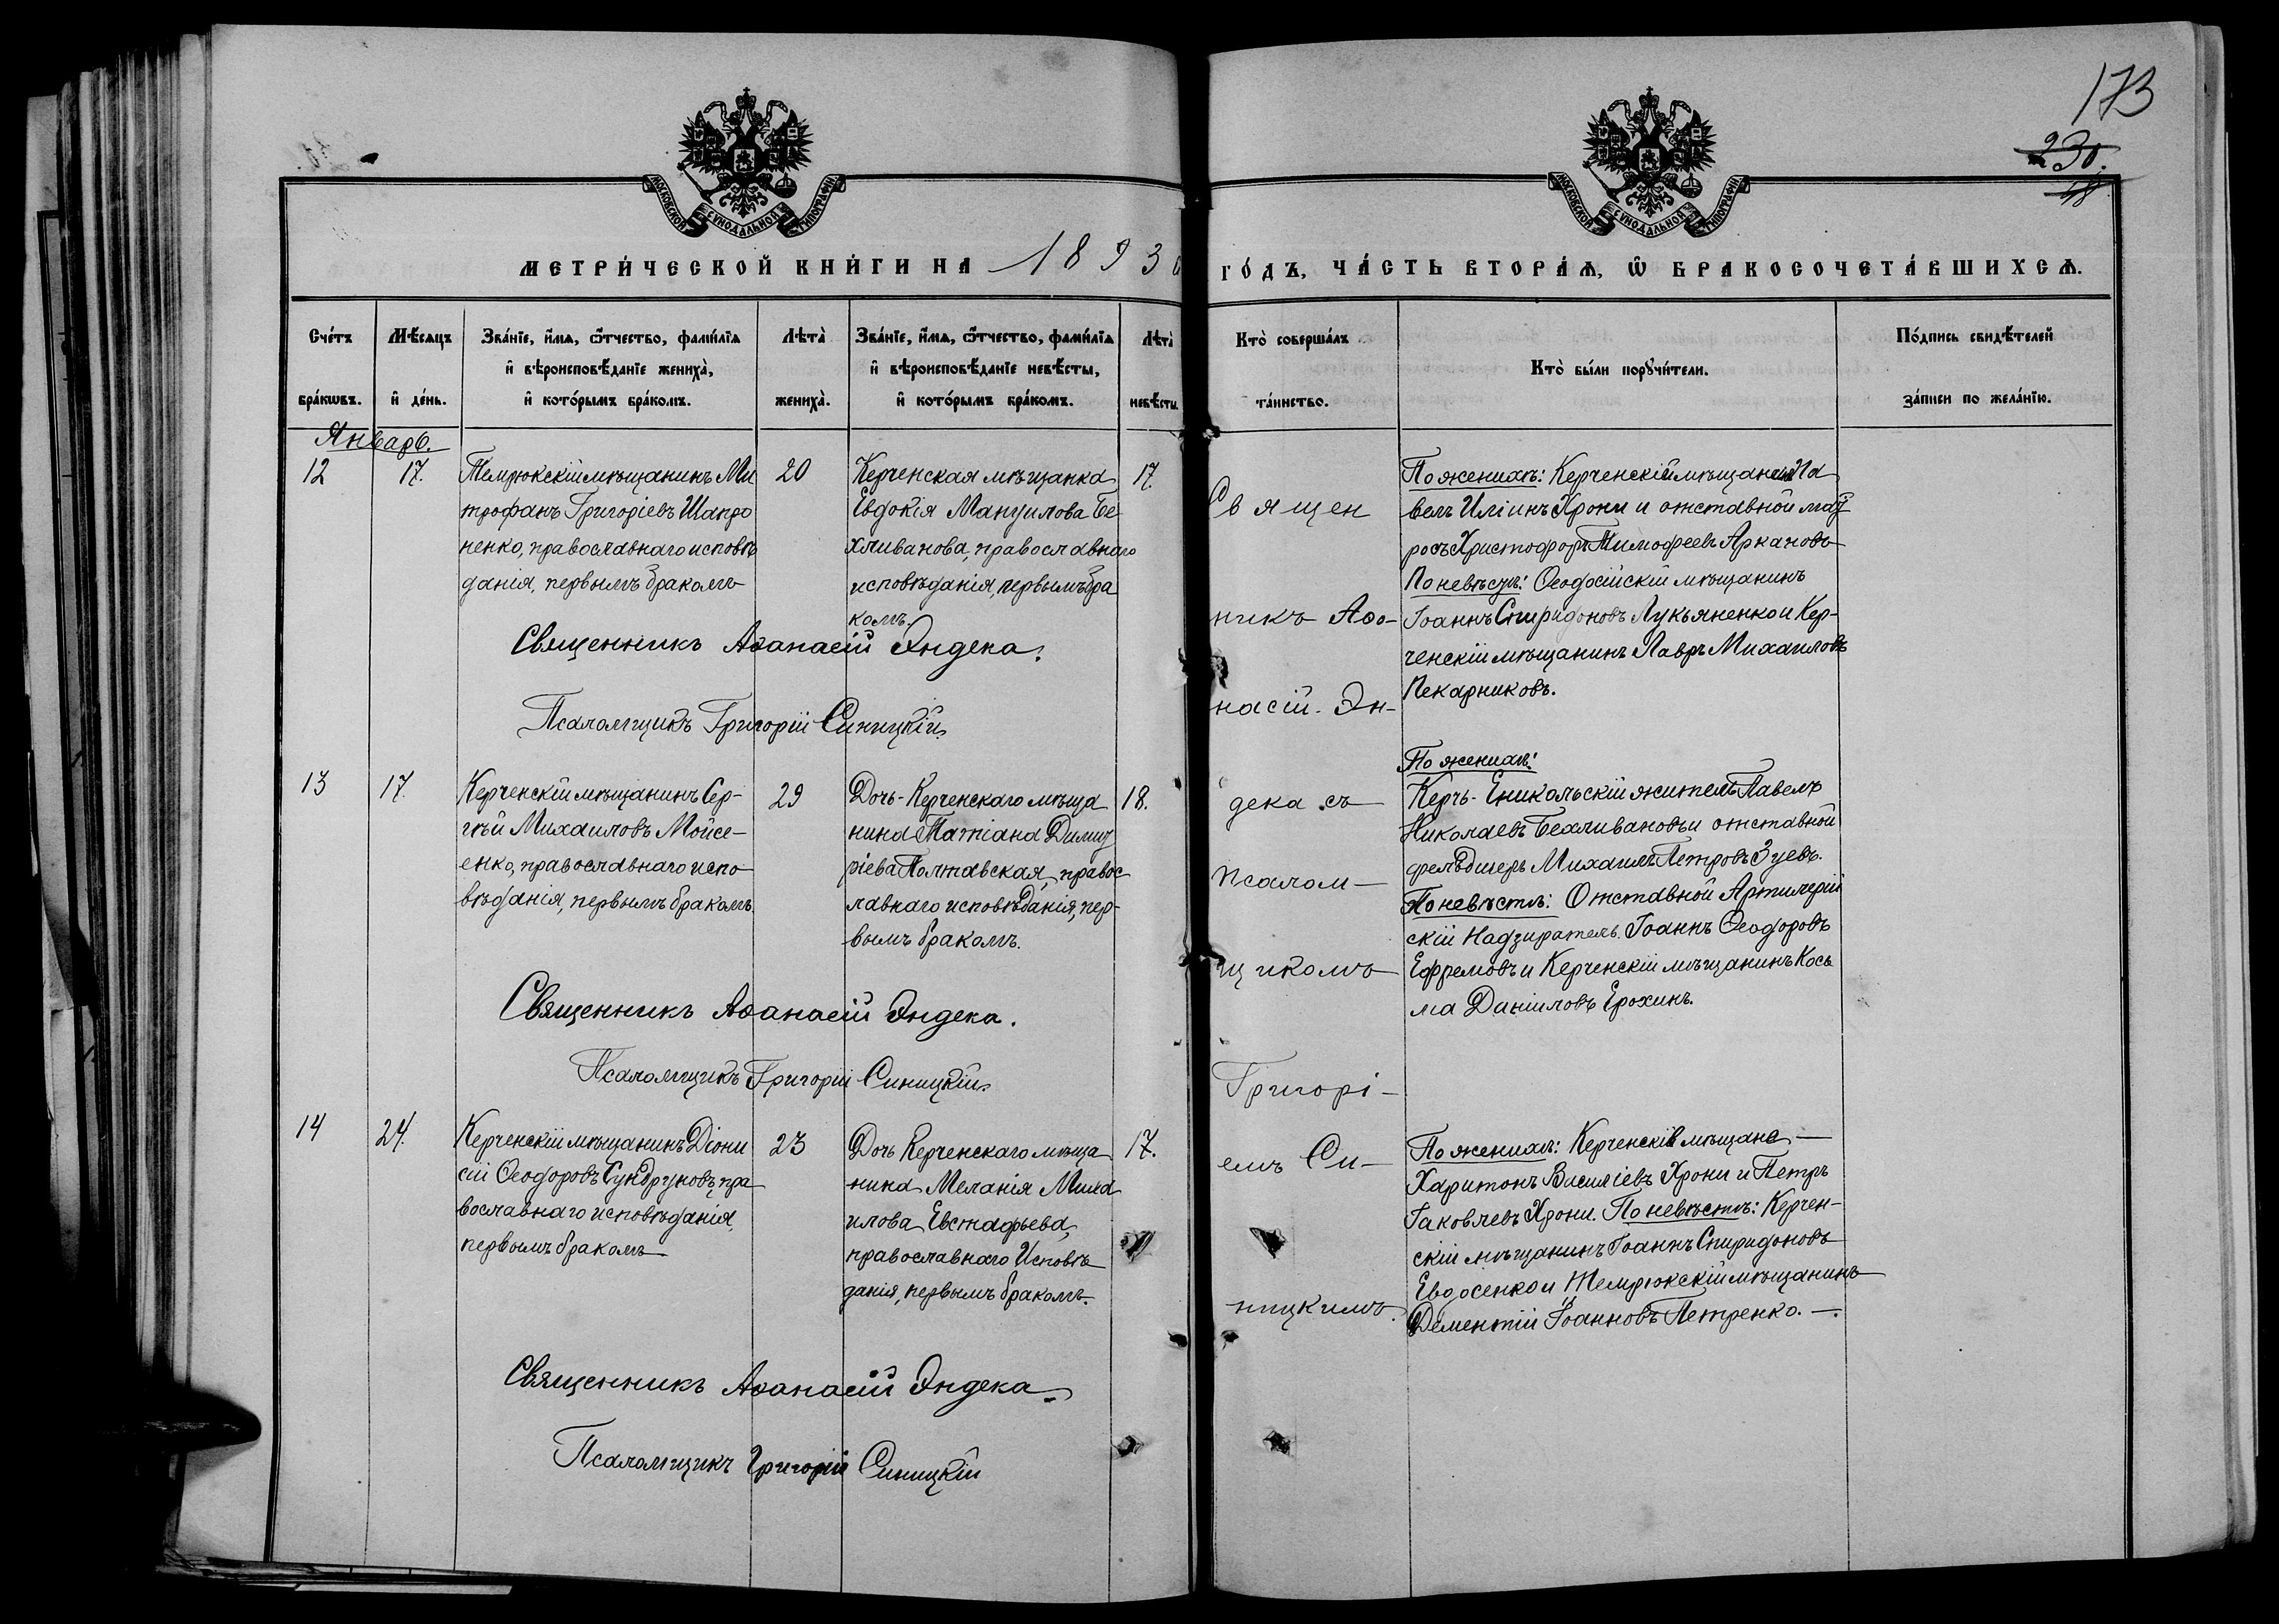 173
230.
48
МОСКОВСКОЙ СѴНОДАЛЬНОЙ ТИПОГРАФІИ.
МОСКОВСКОЙ СѴНОДАЛЬНОЙ ТИПОГРАФІИ.
МЕТРИ́ЧЕСКОЙ КНИ́ГИ НА 1893
ГО́ДЪ, ЧА́СТЬ ВТОРА́Ѧ, Ѽ БРАКОСОЧЕТА́ВШИХСѦ.
Сче́тъ
бра́кѡвъ.
Мѣ́сѧцъ
и҆ де́нь.
Зва́нїе, и҆́мѧ, ѻ҆́тчество, фами́лїѧ
и҆ вѣроисповѣ́данїе жениха̀,
и҆ кото́рымъ бра́комъ.
Лѣта̀
жениха̀.
Зва́нїе, и҆́мѧ, ѻ҆́тчество, фами́лїѧ
и҆ вѣроисповѣ́данїе невѣ́сты,
и҆ кото́рымъ бра́комъ.
Лѣта̀
невѣ́сты.
Кто̀ соверша́лъ
та́инство.
Кто̀ бы́ли порꙋчи́тели.
По́дпись свидѣ́телей
за́писи по жела́нїю.
Январь.
12
17.
Темрюкскій мѣщанинъ Ми
трофанъ Григоріевъ Шапро
ненко, православнаго исповѣ
данія, первымъ бракомъ
20
Керченская мѣщанка
Евдокія Мануилова Бе
хливанова, православнаго
исповѣданія, первымъ бра
комъ.
17.
Священникъ Аѳанасій Эндека.
Псаломщикъ Григорій Синицкій.
По женихѣ: Керченскій мѣщанинъ Па
велъ Иліинъ Хрони и отставной мат
росъ Христофоръ Тимофеевъ Аркановъ
По невѣстѣ: Ѳеодосійскій мѣщанинъ
Іоаннъ Спиридоновъ Лукьяненко и Кер-
ченскій мѣщанинъ Лавръ Михаиловъ
Пекарниковъ.
13
17.
Керченскій мѣщанинъ Сер-
гѣй Михаиловъ Мойсе-
енко, православнаго испо
вѣданія, первымъ бракомъ.
29
Дочь Керченскаго мѣща
нина Татіана Димит
ріева Полтавская, правос
лавнаго исповѣданія, пер-
вымъ бракомъ.
18.
Священникъ Аѳанасій Эндека.
Псаломщикъ Григорій Синицкій.
По женихѣ:
Керчь-Еникольскій житель Павелъ
Николаевъ Бехливановъ и отставной
фельдшеръ Михаилъ Петровъ Зуевъ.
По невѣстѣ: Отставной Артилерій
скій Надзиратель Іоаннъ Ѳеодоровъ
Ефремовъ и Керченскій мѣщанинъ Кось
ма Даніиловъ Ерохинъ.
14
24.
Керченскій мѣщанинъ Діони
сій Ѳеодоровъ Сундруковъ, пра
вославнаго исповѣданія,
первымъ бракомъ
23
Дочь Керченскаго мѣща
нина Меланія Миха
илова Евстафьева,
православнаго Исповѣ
данія, первымъ бракомъ.
17.
Священникъ Аѳанасій Эндека
Псаломщикъ Григорій Синицкій
По женихѣ: Керченскіе мѣщане —
Харитонъ Василіевъ Хрони и Петръ
Іаковлевъ Хрони. По невѣстѣ: Керчен-
скій мѣщанинъ Іоаннъ Спиридоновъ
Евдосенко и Темрюкскій мѣщанинъ
Дементій Іоанновъ Петренко. —.
Священ
никъ Аѳа-
насій Эн-
дека съ
псалом-
щикомъ
Григорі-
емъ Си-
ницкимъ.